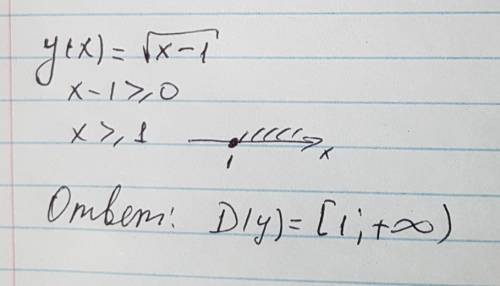 y(x) = √(x-1)
x-1 ≥ 0
x ≥ 1
1 x
Ответ: D(y) = [1; +∞)